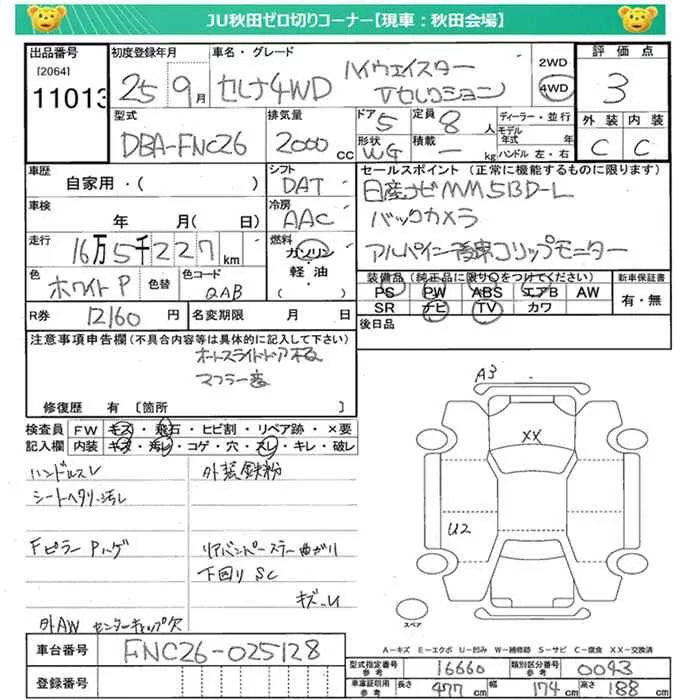 JU秋田ゼロ切りコーナー【現車：秋田会場】
出品番号 初度登録年月 車名・グレード 評価点
[2064] 11013 25 9月 セレナ4WD ハイウェイスター Vセレクション 2WD 4WD 3
型式 排気量 ドア 5 定員 8人 ディーラー・並行 外装 内装
DBA-FNC26 2000cc 形状 WG 積載 ー kg モデル年式 年 ハンドル 左・右 C C
車歴 自家用・( ) シフト DAT セールスポイント（正常に機能するものに限ります）
日産ナビMM513D-L
車検 年 月( 日) 冷房 AAC バックカメラ
走行 16万5千227km 燃料 ガソリン・軽油・( ) アルパイン 後席フリップモニター
色 ホワイトP 色替 色コード QAB 装備品（純正品に限り○をつけてください） 新車保証書
PS PW ABS エアB AW 有・無
SR ナビ TV カワ
R券 12160円 名変期限 月 日 後日品
注意事項申告欄（不具合内容等は具体的に記入して下さい）
オートスライドドア不良
マフラー音
修復歴 有〔箇所 〕
検査員記入欄 FW キズ・飛石・ヒビ割・リペア跡・×要
内装 キズ・汚レ・コゲ・穴・スレ・キレ・破レ
ハンドルスレ 外装鉄粉
シートヘタリ、汚レ
Fピラー Pハゲ リアバンパーステー曲がり
下回り SC
キズ
外AW センターキャップ欠
A3
XX
U2
スペア
A－キズ E－エクボ U－凹み W－補修跡 S－サビ C－腐食 XX－交換済
車台番号 FNC26-025128
登録番号
型式指定番号 参考 16660 類別区分番号 参考 0043
車庫証明用 参考 長さ 477cm 幅 174cm 高さ 188cm